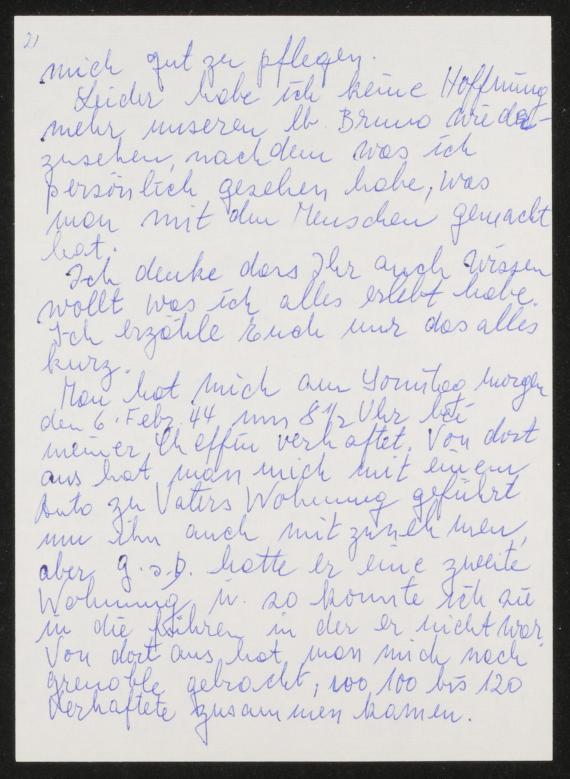 2)
mich gut zu pflegen.
Leider habe ich keine Hoffnung
mehr unseren lb. Bruno wieder-
zusehen, nachdem was ich
persönlich gesehen habe, was
man mit den Menschen gemacht
hat.
Ich denke dass Ihr auch wissen
wollt was ich alles erlebt habe.
Ich erzähle Euch nur das alles
kurz.
Man hat mich am Sonntag morgen
den 6. Febr. 44 um 8 1/2 Uhr bei
meiner Cheffin verhaftet. Von dort
aus hat man mich mit einem
Auto zu Vaters Wohnung geführt
um ihn auch mitzunehmen,
aber g.s.D. hatte er eine zweite
Wohnung u. so konnte ich sie
in die führen in der er nicht war.
Von dort aus hat man mich nach
Grenoble gebracht, wo 100 bis 120
Verhaftete zusammen kamen.